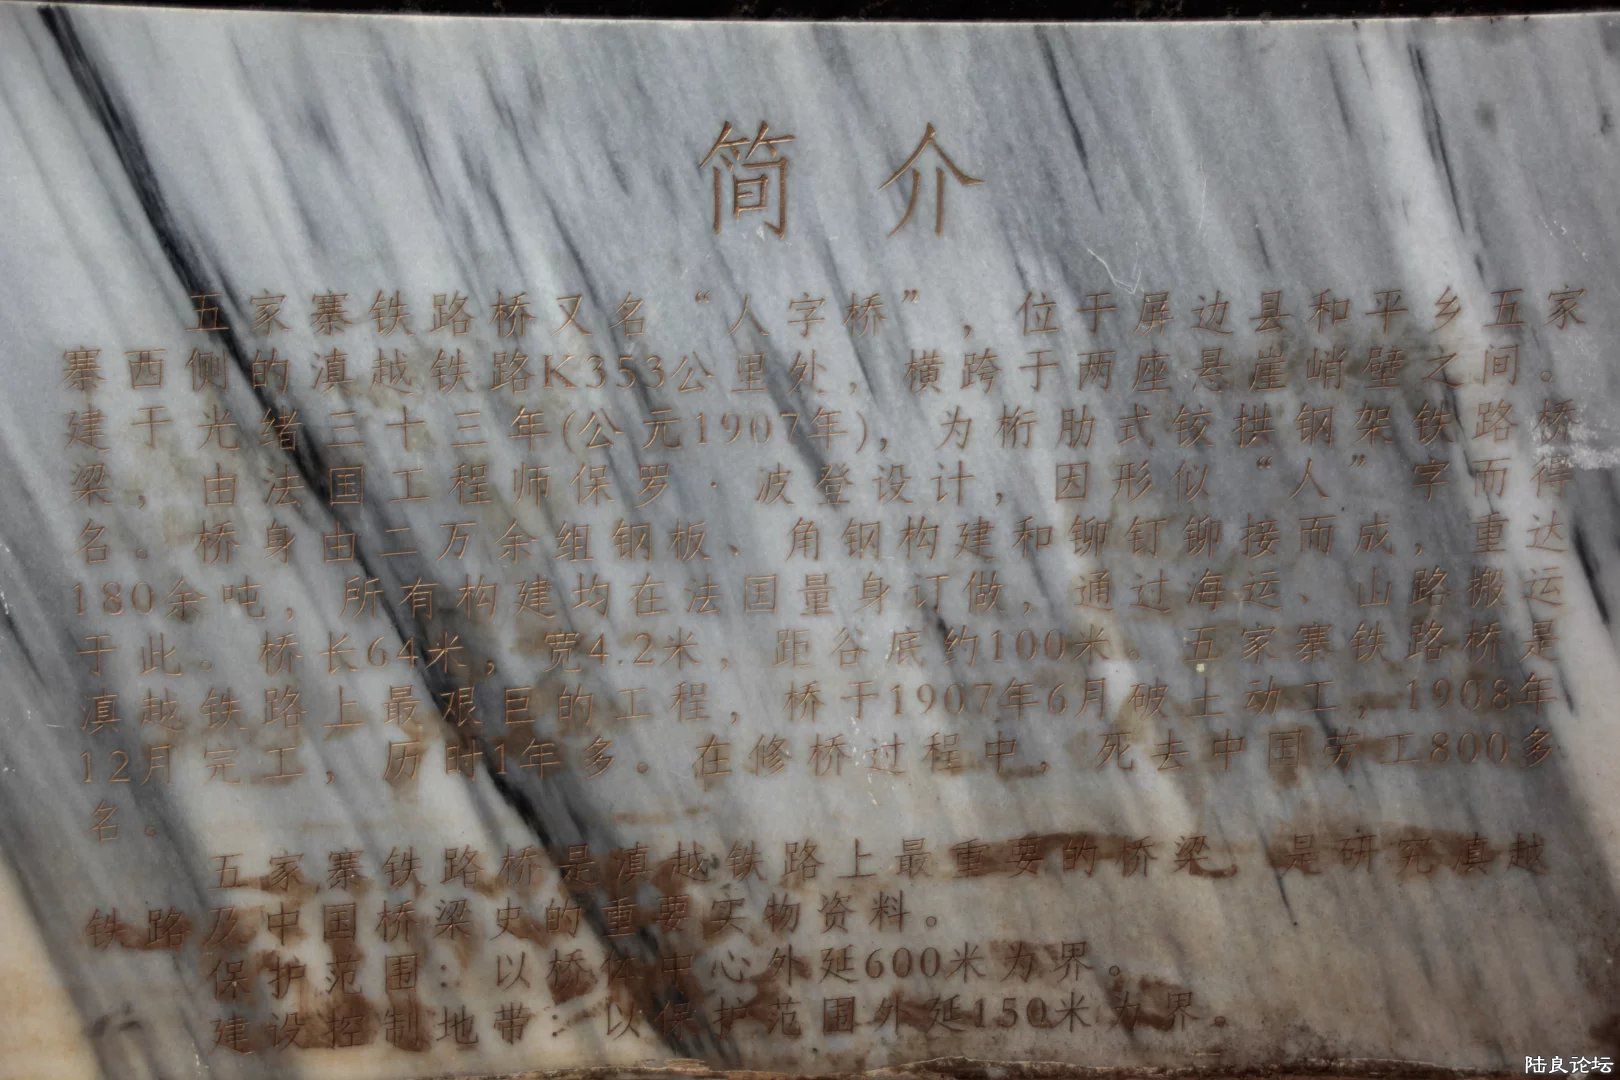 简介
五家寨铁路桥又名“人字桥”，位于屏边县和平乡五家
寨西侧的滇越铁路K353公里处，横跨于两座悬崖峭壁之间。
建于光绪三十三年(公元1907年)，为桁肋式铰拱钢架铁路桥
梁，由法国工程师保罗·波登设计，因形似“人”字而得
名。桥身由二万余组钢板、角钢构建和铆钉铆接而成，重达
180余吨，所有构建均在法国量身订做，通过海运、山路搬运
于此。桥长64米，宽4.2米，距谷底约100米。五家寨铁路桥是
滇越铁路上最艰巨的工程，桥于1907年6月破土动工，1908年
12月完工，历时1年多。在修桥过程中，死去中国劳工800多
名。
五家寨铁路桥是滇越铁路上最重要的桥梁，是研究滇越
铁路及中国桥梁史的重要实物资料。
保护范围：以桥体中心外延600米为界。
建设控制地带：以保护范围外延150米为界。
陆良论坛